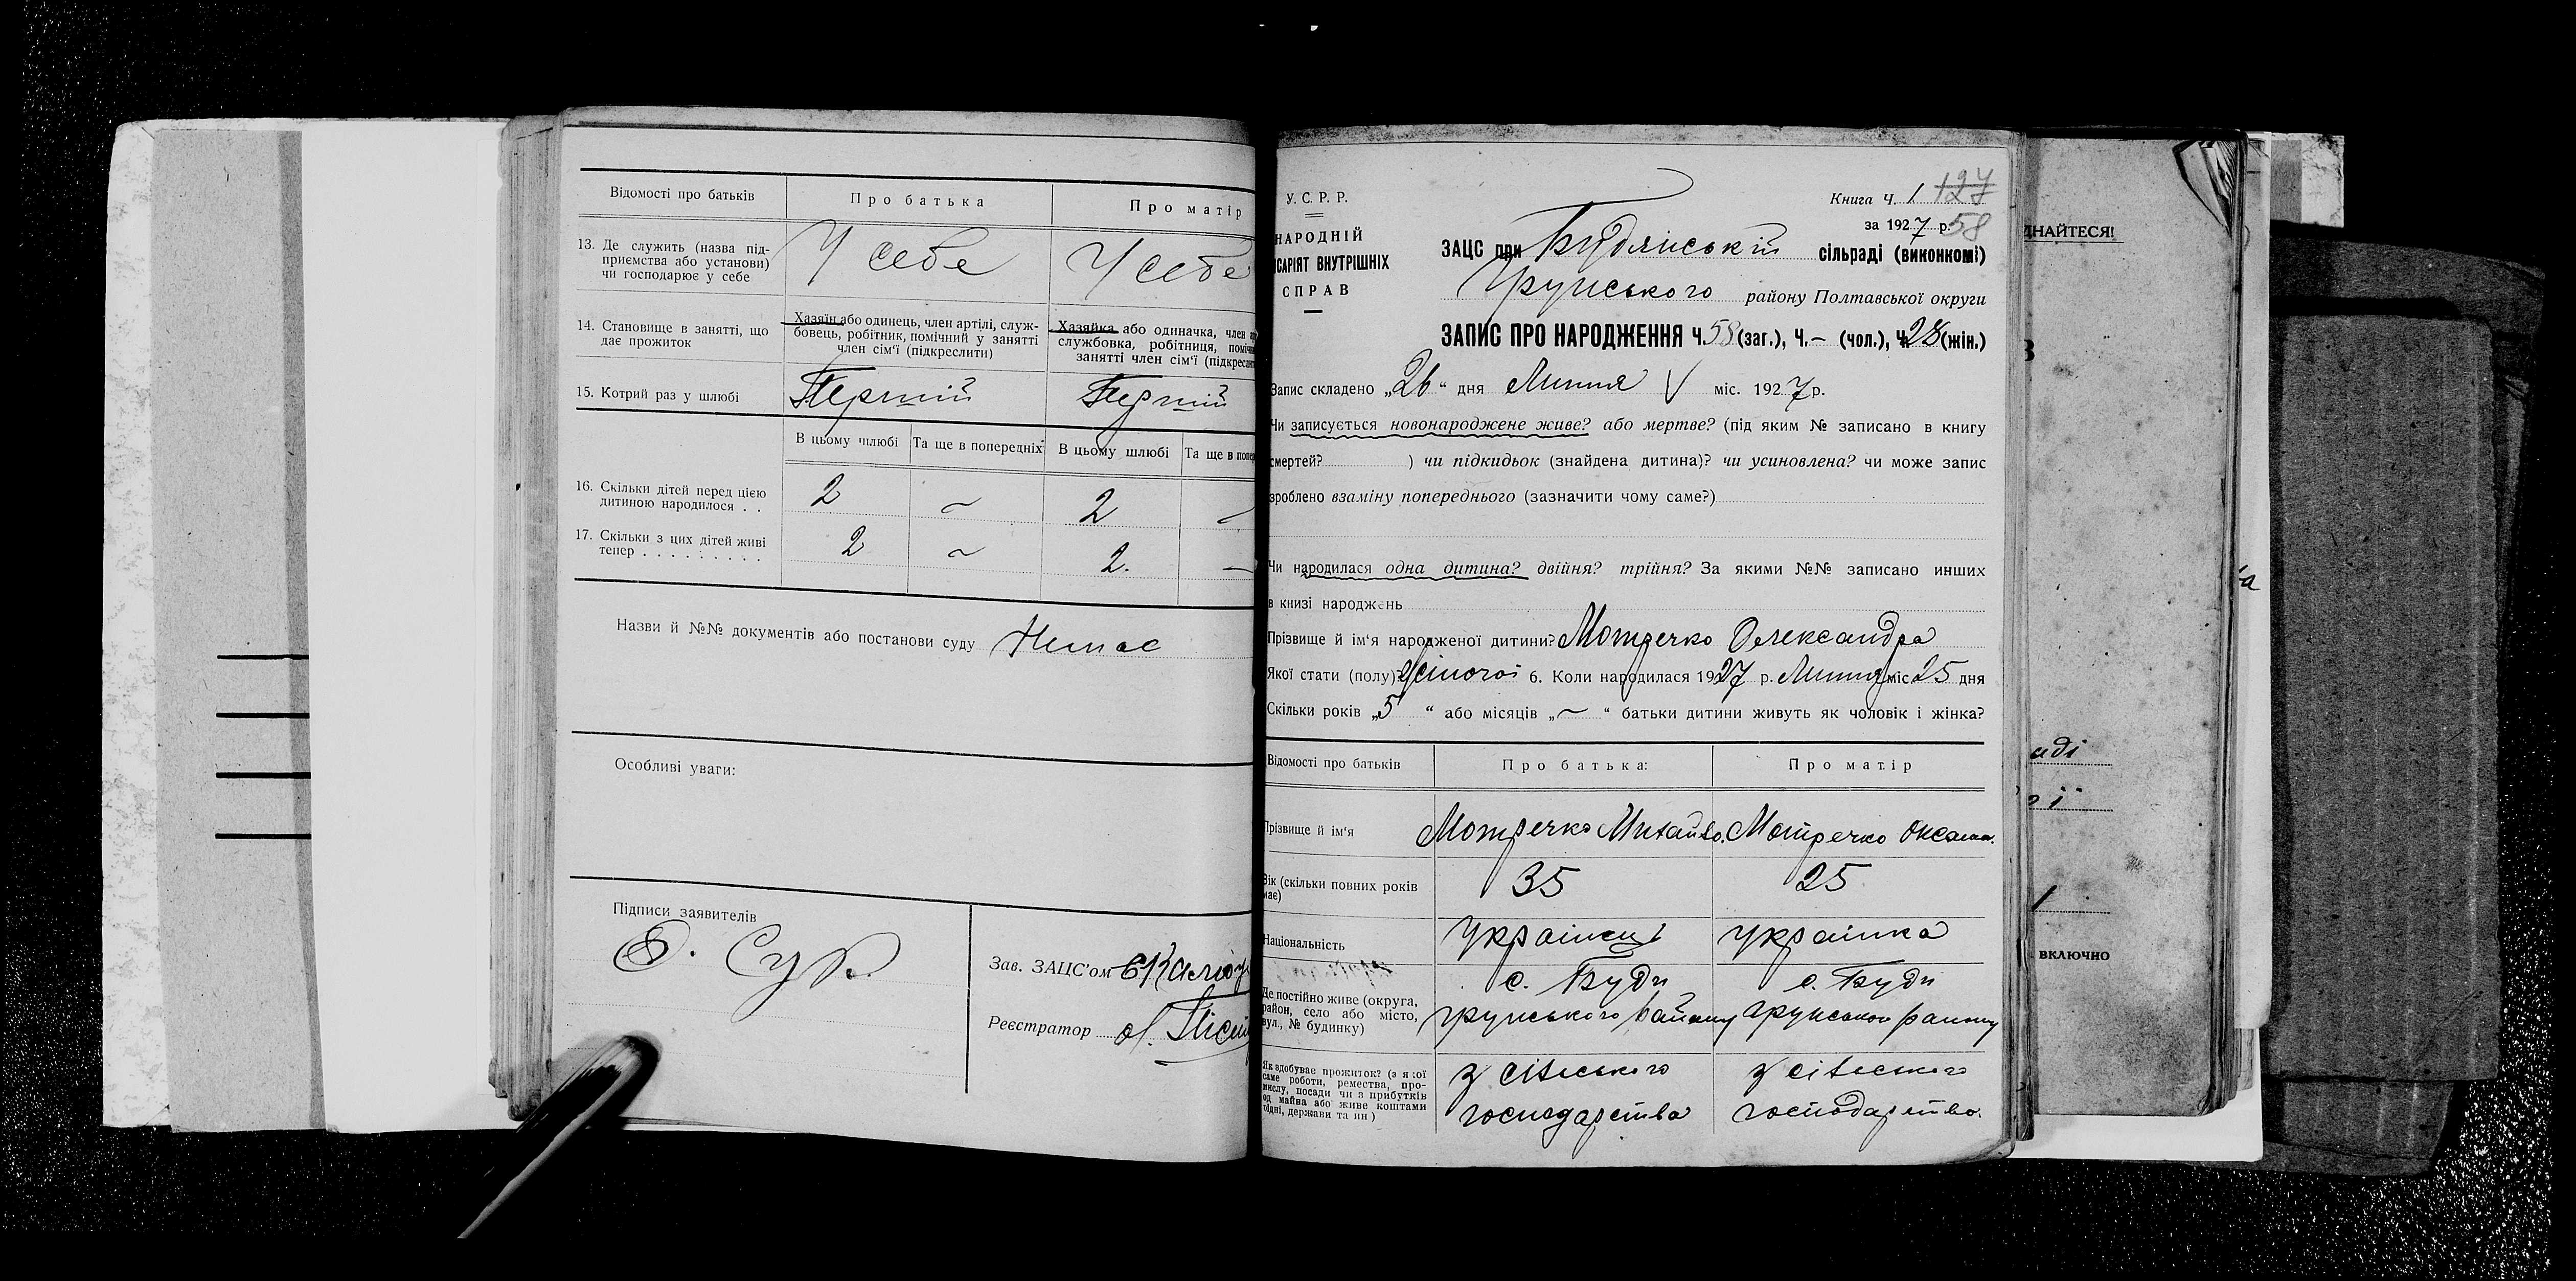 Відомості про батьків
Про батька
Про матір
13. Де служить (назва під-
приємства або установи)
чи господарює у себе
У себе
У себе
14. Становище в занятті, що
дає прожиток
Хазяїн або одинець, член артілі, служ-
бовець, робітник, помічний у занятті
член сім'ї (підкреслити)
Хазяйка або одиначка, член ар
службовка, робітниця, помічн
занятті член сім'ї (підкресли
15. Котрий раз у шлюбі
Перший
Перший
В цьому шлюбі
Та ще в попередніх
В цьому шлюбі
Та ще в попер
16. Скільки дітей перед цією
дитиною народилося . .
2 ~ 2 ~
17. Скільки з цих дітей живі
тепер . . . . . . . . .
2 ~ 2. —
Назви й №№ документів або постанови суду Немає
Особливі уваги:
Підписи заявителів
Зав. ЗАЦС'ом
Реєстратор
У. С. Р. Р.
НАРОДНІЙ
ІСАРІЯТ ВНУТРІШНІХ
СПРАВ
Книга Ч. 1 127
за 1927 р. 58
ЗАЦС при Будянській сільраді (виконкомі)
Грунського району Полтавської округи
ЗАПИС ПРО НАРОДЖЕННЯ Ч. 58 (заг.), Ч. – (чол.), Ч. 28 (жін.)
Запис складено „26“ дня Липня V міс. 1927 р.
Чи записується новонароджене живе? або мертве? (під яким № записано в книгу
смертей? ) чи підкидьок (знайдена дитина)? чи усиновлена? чи може запис
зроблено взаміну попереднього (зазначити чому саме?)
Чи народилася одна дитина? двійня? трійня? За якими №№ записано инших
в книзі народжень
Прізвище й ім'я народженої дитини? Мотречко Олександра
Якої стати (полу)? жіночої 6. Коли народилася 1927 р. Липня міс 25 дня
Скільки років „5 “ або місяців „~ “ батьки дитини живуть як чоловік і жінка?
Відомості про батьків
Про батька:
Про матір
Прізвище й ім'я
Мотречко Михайло.
Мотречко Оксана.
Вік (скільки повних років
має)
35
25
Національність
Українец
Українка
Де постійно живе (округа,
район, село або місто,
вул., № будинку)
с. Буди
грунського району
с. Буди
грунського району
Як здобуває прожиток? (з якої
саме роботи, ремества, про-
мислу, посади чи з прибутків
од майна або живе коштами
рідні, держави та ин)
З сільського
господарства
З сільського
господарства.
ДНАЙТЕСЯ!
аді
ії
включно